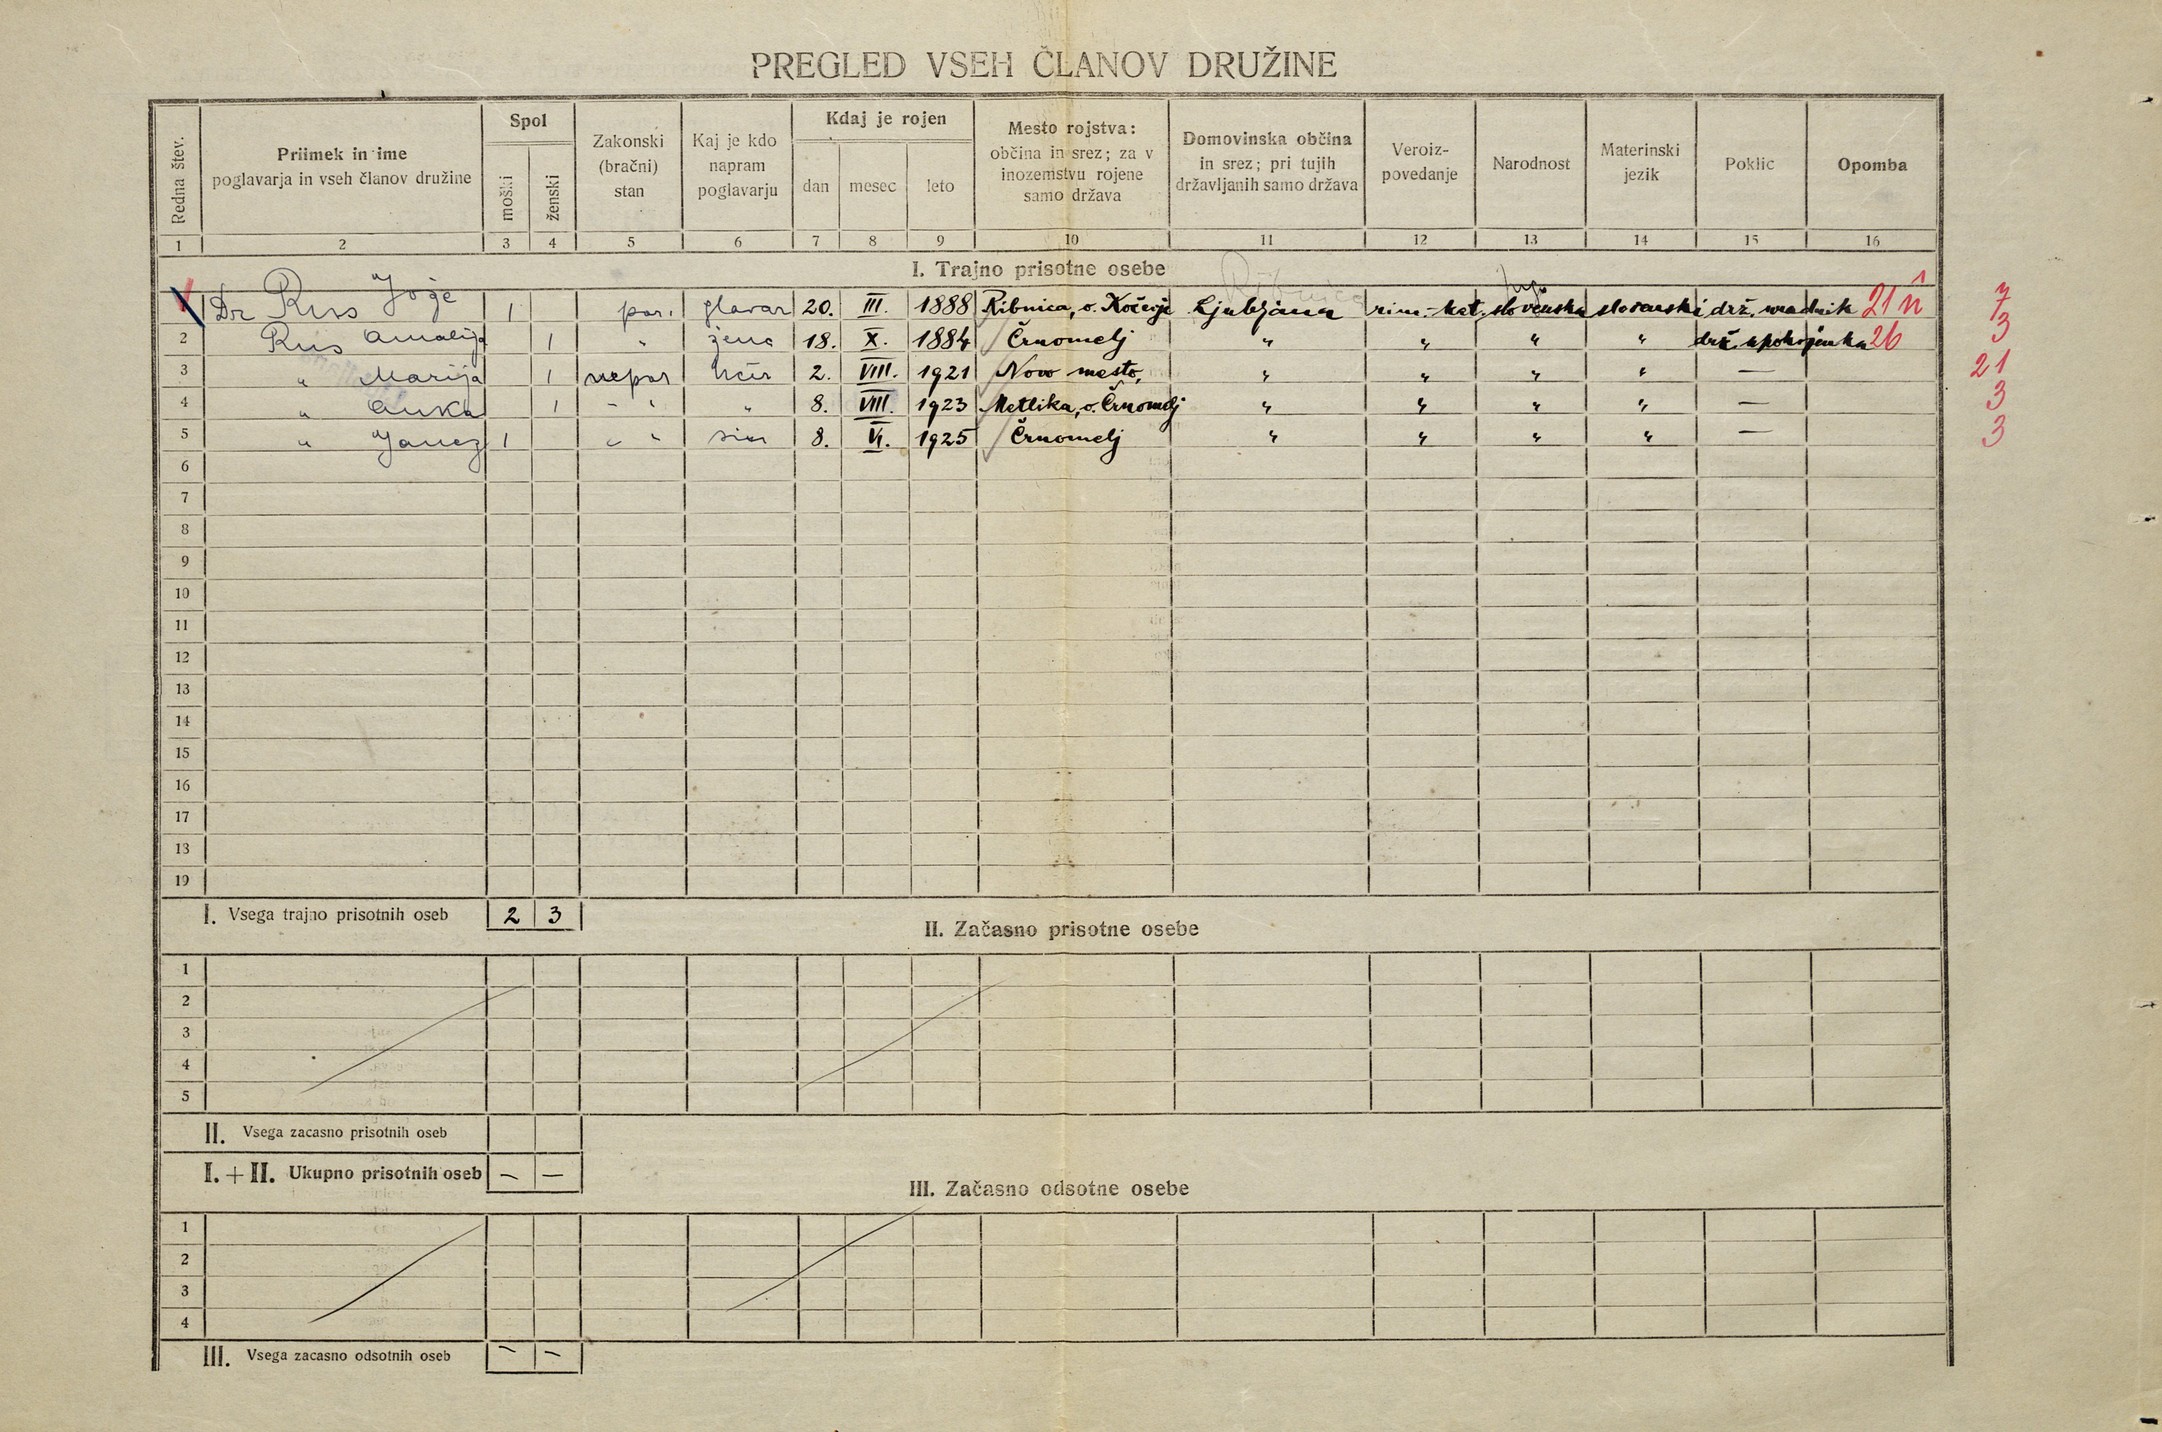 PREGLED VSEH ČLANOV DRUŽINE
Redna štev.
Priimek in ime
poglavarja in vseh članov družine
Spol
moški
ženski
Zakonski
(bračni)
stan
Kaj je kdo
napram
poglavarju
Kdaj je rojen
dan
mesec
leto
Mesto rojstva:
občina in srez; za v
inozemstvu rojene
samo država
Domovinska občina
in srez; pri tujih
državljanih samo država
Veroiz-
povedanje
Narodnost
Materinski
jezik
Poklic
Opomba
1 2 3 4 5 6 7 8 9 10 11 12 13 14 15 16
I. Trajno prisotne osebe
Ribnica
Jugo
Dr Rus Jože 1 por. glavar 20. III. 1888 Ribnica, o. Kočevje Ljubljana rim.-kat. slovenska slovenski drž. uradnik 21 n 7
2 Rus Amalija 1 " žena 18. X. 1884 Črnomelj " " " " drž. upokojenka 26 3
3 " Marija 1 nepor hčer 2. VIII. 1921 Novo mesto, " " " " — 21
4 " Anka 1 - " " 8. VIII. 1923 Metlika, o. Črnomelj " " " " — 3
5 " Janez 1 - " sin 8. VI. 1925 Črnomelj " " " " — 3
6
7
8
9
10
11
12
13
14
15
16
17
13
19
I. Vsega trajno prisotnih oseb 2 3
II. Začasno prisotne osebe
1
2
3
4
5
II. Vsega zacasno prisotnih oseb
I. + II. Ukupno prisotnih oseb — —
III. Začasno odsotne osebe
1
2
3
4
III. Vsega zacasno odsotnih oseb — —